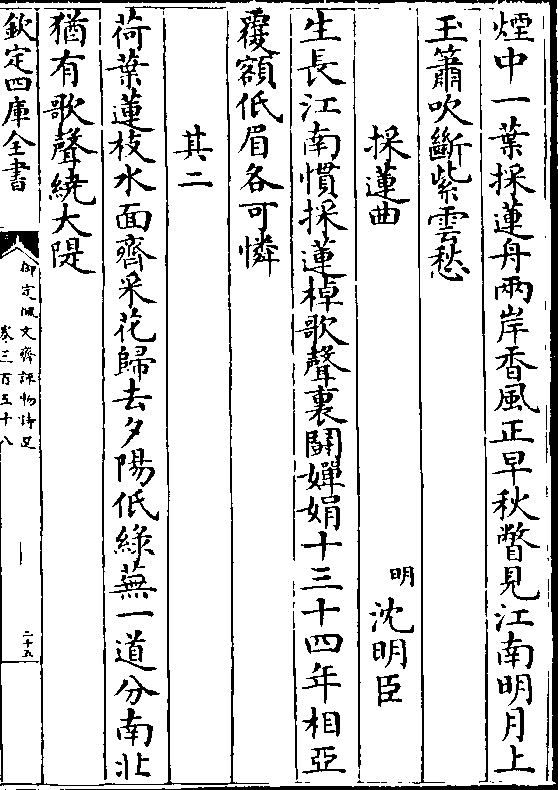 煙中一葉採蓮舟兩岸香風正早秋瞥見江南明月上
玉簫吹斷紫雲愁
採蓮曲 明 沈明臣
生長江南慣採蓮棹歌聲裏鬭嬋娟十三十四年相亞
覆額低眉各可憐
其二
荷葉蓮枝水面齊采花歸去夕陽低綠蕪一道分南北
猶有歌聲繞大隄
欽定四庫全書
御定佩文齋詠物詩選
卷三百五十八
二十五